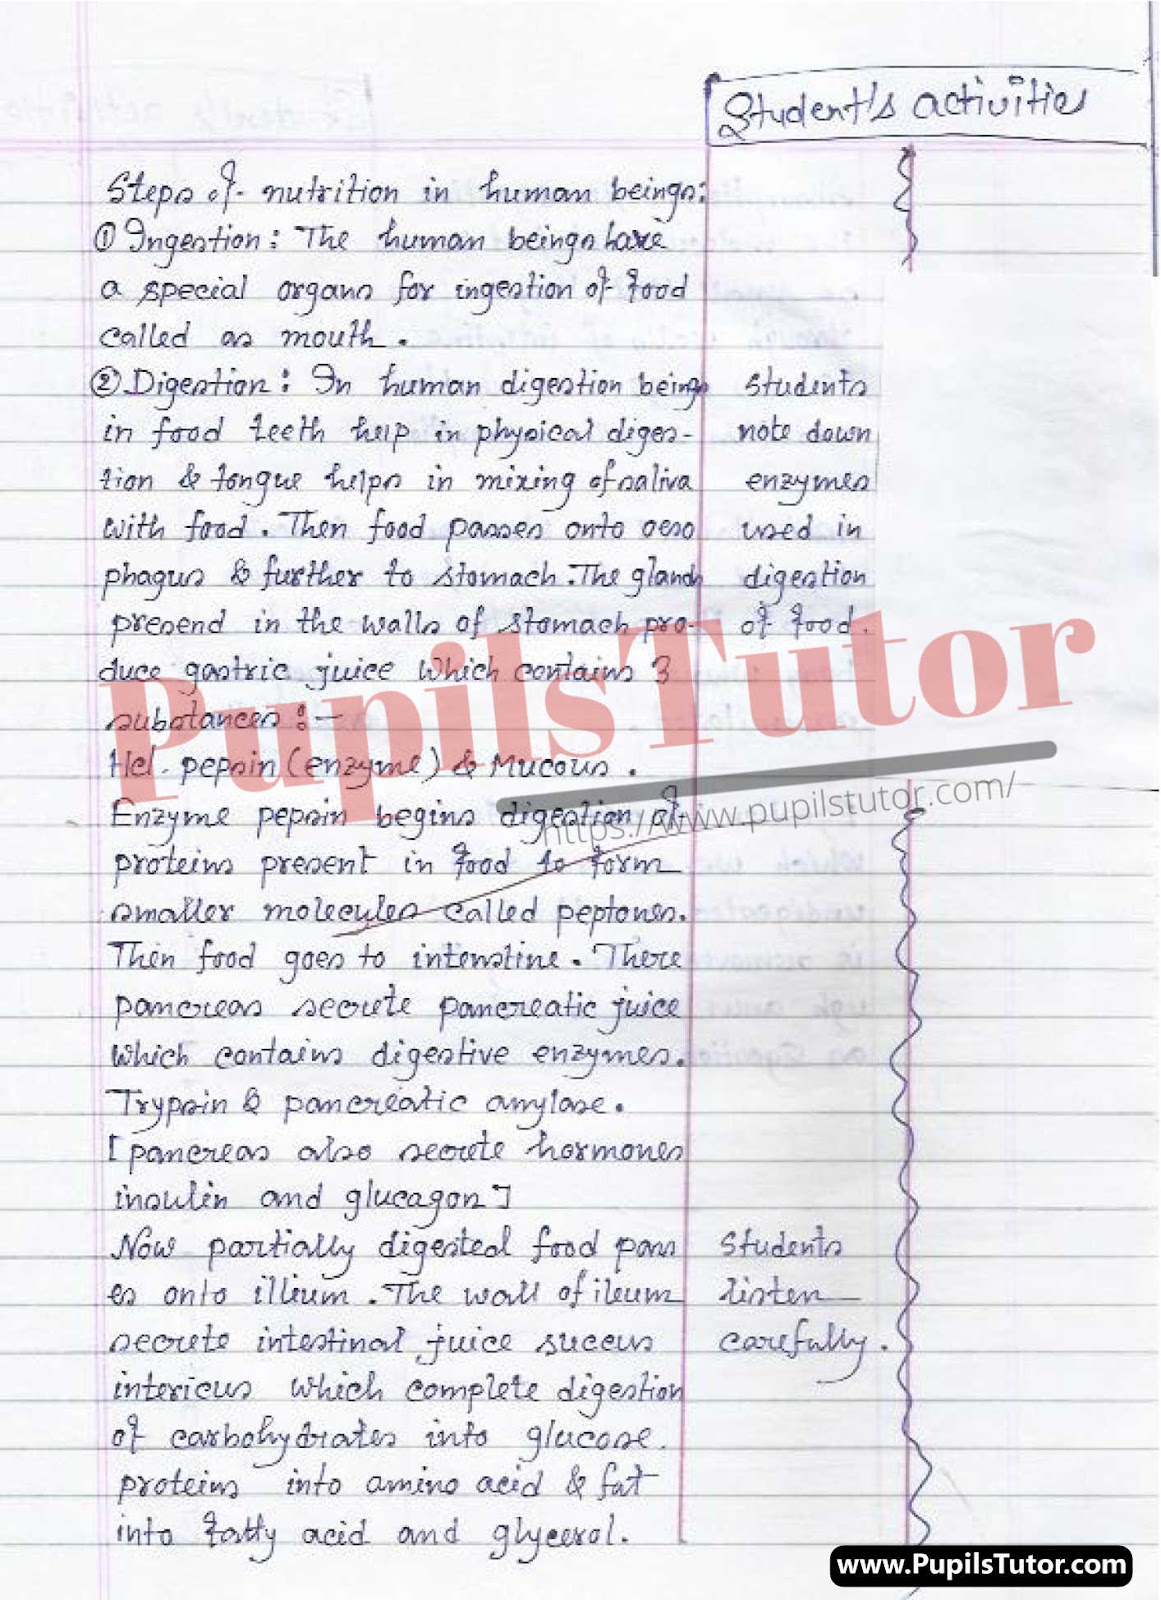 Student's activities
Steps of nutrition in human beings:
① Ingestion: The human beings have
a special organs for ingestion of food
called as mouth.
② Digestion: In human digestion beings
in food teeth help in physical diges-
tion & tongue helps in mixing of saliva
with food. Then food passes onto oeso
phagus & further to stomach. The glands
presend in the walls of stomach pro-
duce gastric juice which contains 3
substances :-
Hcl. pepsin (enzyme) & Mucous.
Enzyme pepsin begins digestion of
proteins present in food to form
smaller molecules called peptones.
Then food goes to intenstine. There
pancreas secrete pancreatic juice
which contains digestive enzymes.
Trypsin & pancreatic amylase.
[pancreas also secrete hormones
insulin and glucagon]
Now partially digested food pass
es onto illeum. The wall of ileum
secrete intestinal juice succus
intericus which complete digestion
of carbohydrates into glucose.
proteins into amino acid & fat
into fatty acid and glycerol.
students
note down
enzymes
used in
digestion
of food.
Students
listen
carefully.
PupilsTutor
https://www.pupilstutor.com/
www.PupilsTutor.com